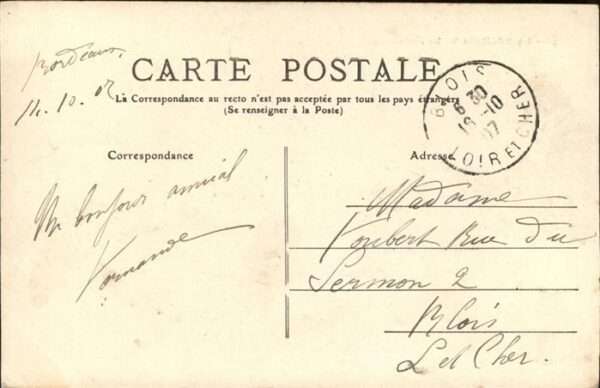 Bordeaux,
14.10.07
CARTE POSTALE
La Correspondance au recto n'est pas acceptée par tous les pays étrangers
(Se renseigner à la Poste)
BLOIS
6 30
-10
07
LOIR ET CHER
Correspondance
Adresse
Un bonjour amical
Madame
Joubert Rue du
Sermon 2
Blois
L et Cher.